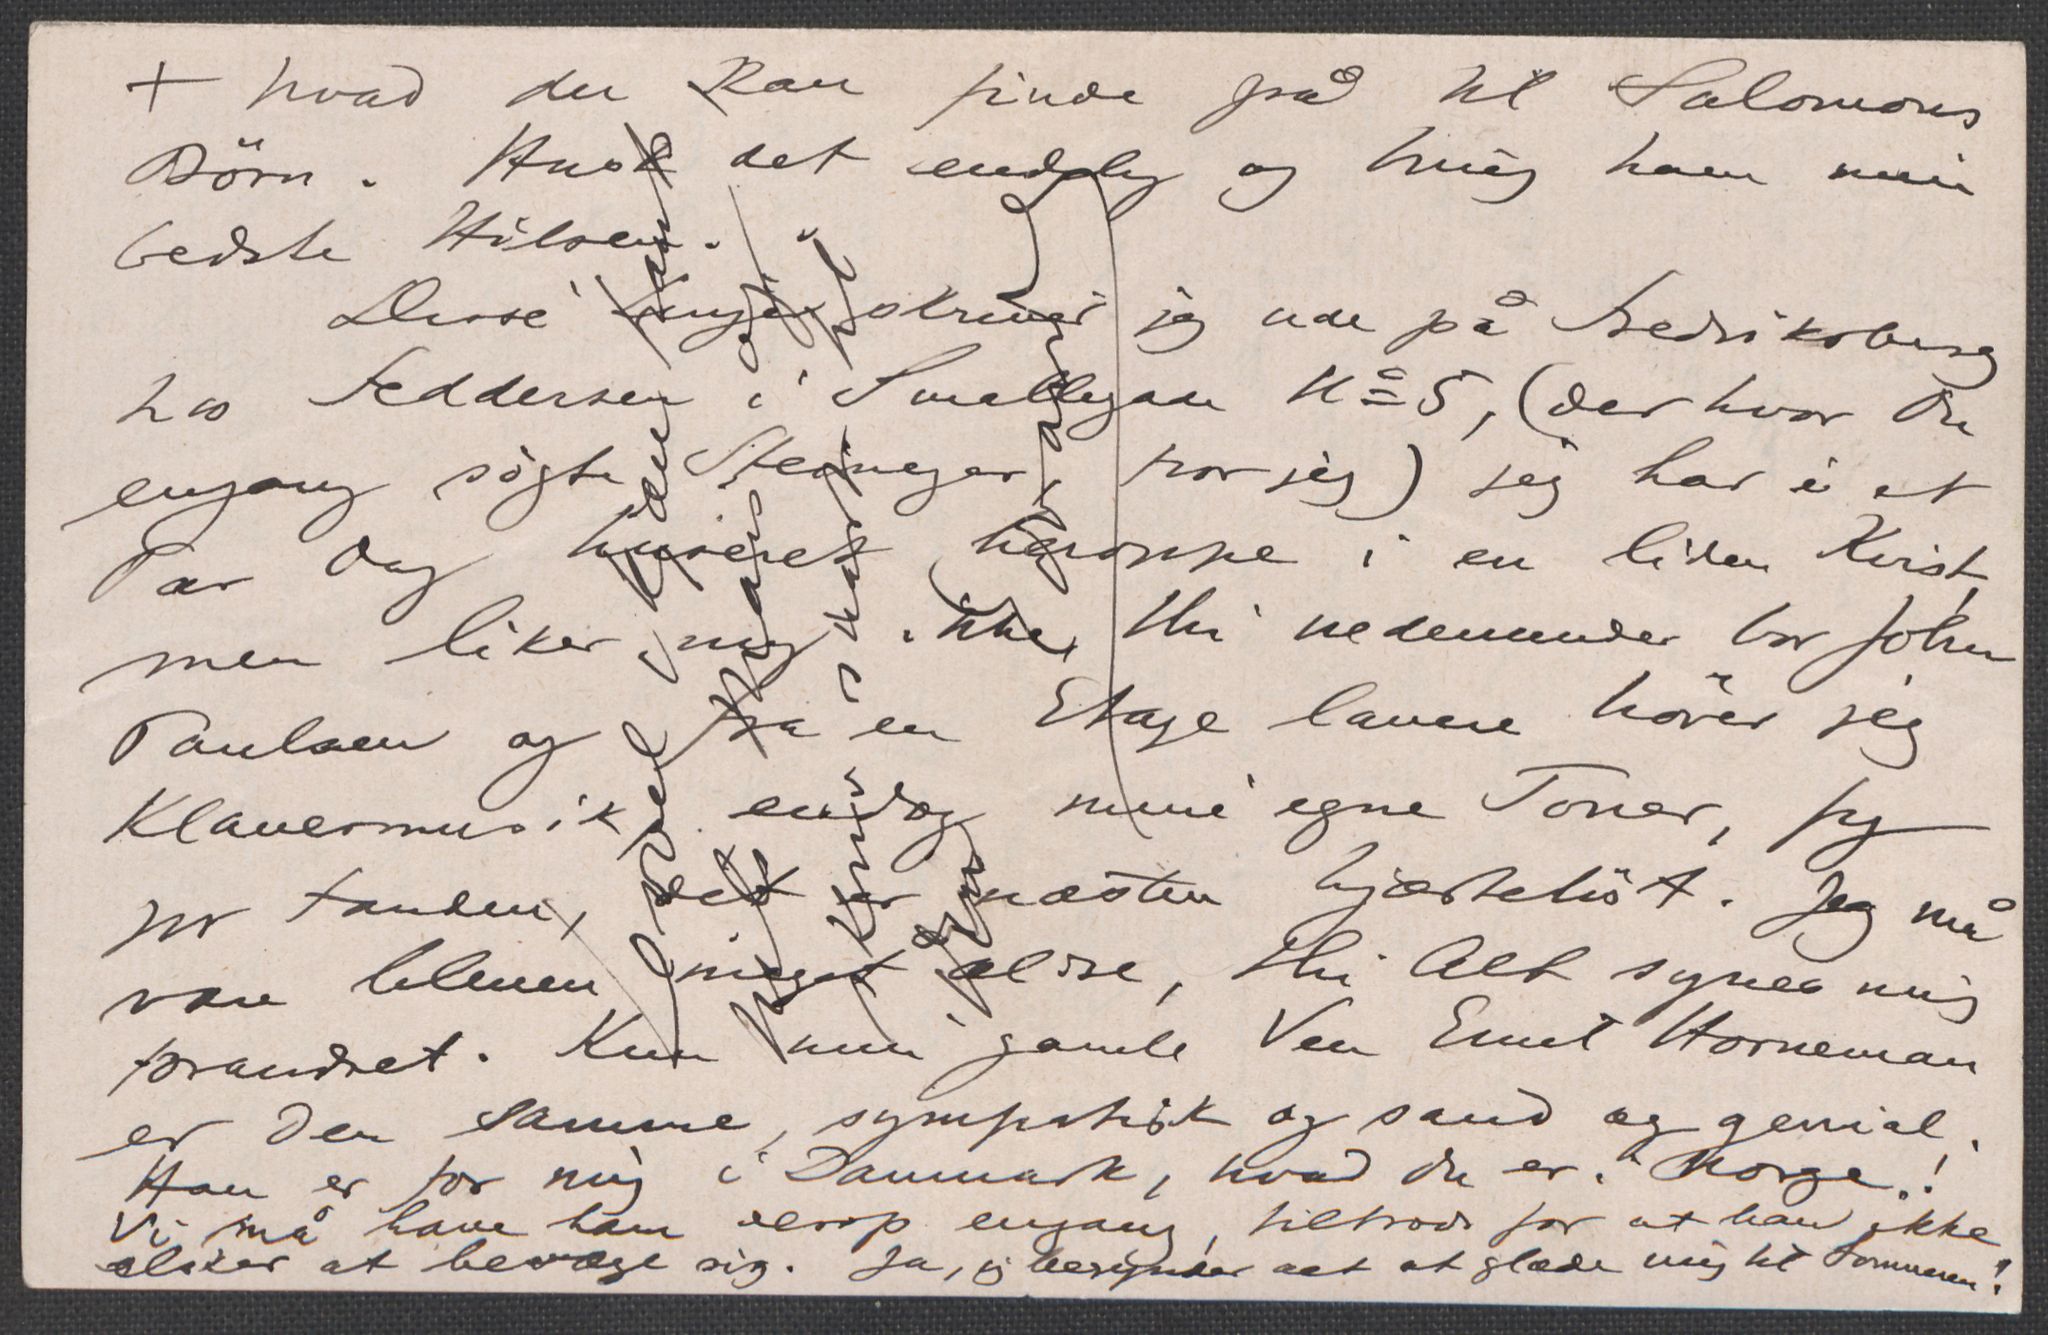 + hvad du kan finde på til Salomons
Börn. Husk det endelig og bring ham min
bedste Hilsen.
Disse Linjer skriver jeg ude på Fredriksberg
hos Feddersen i Smallegade No 5, (der hvor Du
engang søgte Steineger, tror jeg) jeg har i et
Par Dag huseret heroppe i en liden Kvist,
men liker mig ikke, thi nedenunder bor John
Paulsen og fra en Etage lavere hörer jeg
Klavermusik, endog mine egne Toner, fy
for fanden, det er næsten hjærteløst. Jeg må
være bleven meget ældre, thi Alt synes mig
forandret. Kun min gamle Ven Emil Horneman
er den samme, sympatisk og sand og genial.
Han er for mig i Danmark, hvad du er i Norge.!
Vi må have ham derop engang, tiltrods for at han ikke
elsker at bevæge sig. Ja, jeg begynder alt at glæde mig til Sommeren!
Lev vel